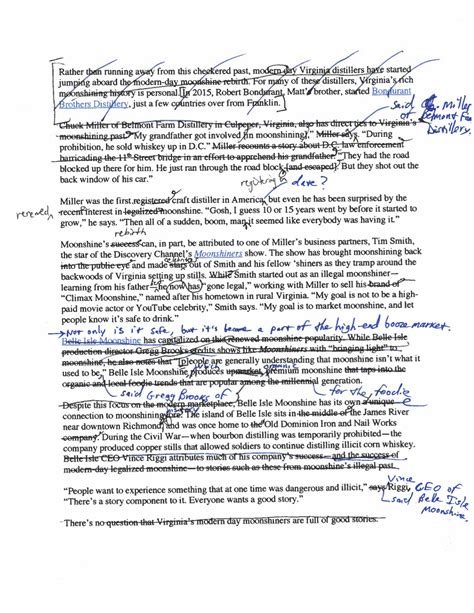 Rather than running away from this checkered past, modern-day Virginia distillers have started
jumping aboard the modern-day moonshine rebirth. For many of these distillers, Virginia's rich
moonshining history is personal. In 2015, Robert Bondurant, Matt's brother, started Bondurant
Brothers Distillery, just a few countries over from Franklin.
said C. Miller
of Belmont Fa
Distillery
Chuck Miller of Belmont Farm Distillery in Culpeper, Virginia, also has direct ties to Virginia's
moonshining past. "My grandfather got involved in moonshining," Miller says. "During
prohibition, he sold whiskey up in D.C." Miller recounts a story about D.C. law enforcement
barricading the 11th Street bridge in an effort to apprehend his grandfather. "They had the road
blocked up there for him. He just ran through the road block [and escaped]. But they shot out the
back window of his car."
registering
dave?
Miller was the first registered craft distiller in America, but even he has been surprised by the
renewed
recent interest in legalized moonshine. "Gosh, I guess 10 or 15 years went by before it started to
grow," he says. "Then all of a sudden, boom, man, it seemed like everybody was having it."
rebirth
Moonshine's success can, in part, be attributed to one of Miller's business partners, Tim Smith,
the star of the Discovery Channel's Moonshiners show. The show has brought moonshining back
into the public eye and made stars out of Smith and his fellow 'shiners as they tramp around the
backwoods of Virginia setting up stills. While Smith started out as an illegal moonshiner—
but
learning from his father—he now has "gone legal," working with Miller to sell his brand of
"Climax Moonshine," named after his hometown in rural Virginia. "My goal is not to be a high-
paid movie actor or YouTube celebrity," Smith says. "My goal is to market moonshine, and let
people know it's safe to drink."
Not only is it safe, but it's become a part of the high-end booze market.
Belle Isle Moonshine has capitalized on this renewed moonshine popularity. While Belle Isle
production director Gregg Brooks credits shows like Moonshiners with "bringing light" to
moonshine, he also notes "[people are generally understanding that moonshine isn't what it
which
organic
used to be," Belle Isle Moonshine produces upmarket, premium moonshine that taps into the
organic and local foodie trends that are popular among the millennial generation.
said Gregg Brooks of
for the foodie
Despite this focus on the modern marketplace, Belle Isle Moonshine has its own unique
connection to moonshining lore. The island of Belle Isle sits in the middle of the James River
near downtown Richmond, and was once home to the Old Dominion Iron and Nail Works
company. During the Civil War—when bourbon distilling was temporarily prohibited—the
company produced copper stills that allowed soldiers to continue distilling illicit corn whiskey.
Belle Isle CEO Vince Riggi attributes much of his company's success—and the success of
modern-day legalized moonshine—to stories such as these from moonshine's illegal past.
Vince
"People want to experience something that at one time was dangerous and illicit," says Riggi, CEO of
"There's a story component to it. Everyone wants a good story."
said Belle Isle
Moonshine
There's no question that Virginia's modern day moonshiners are full of good stories.